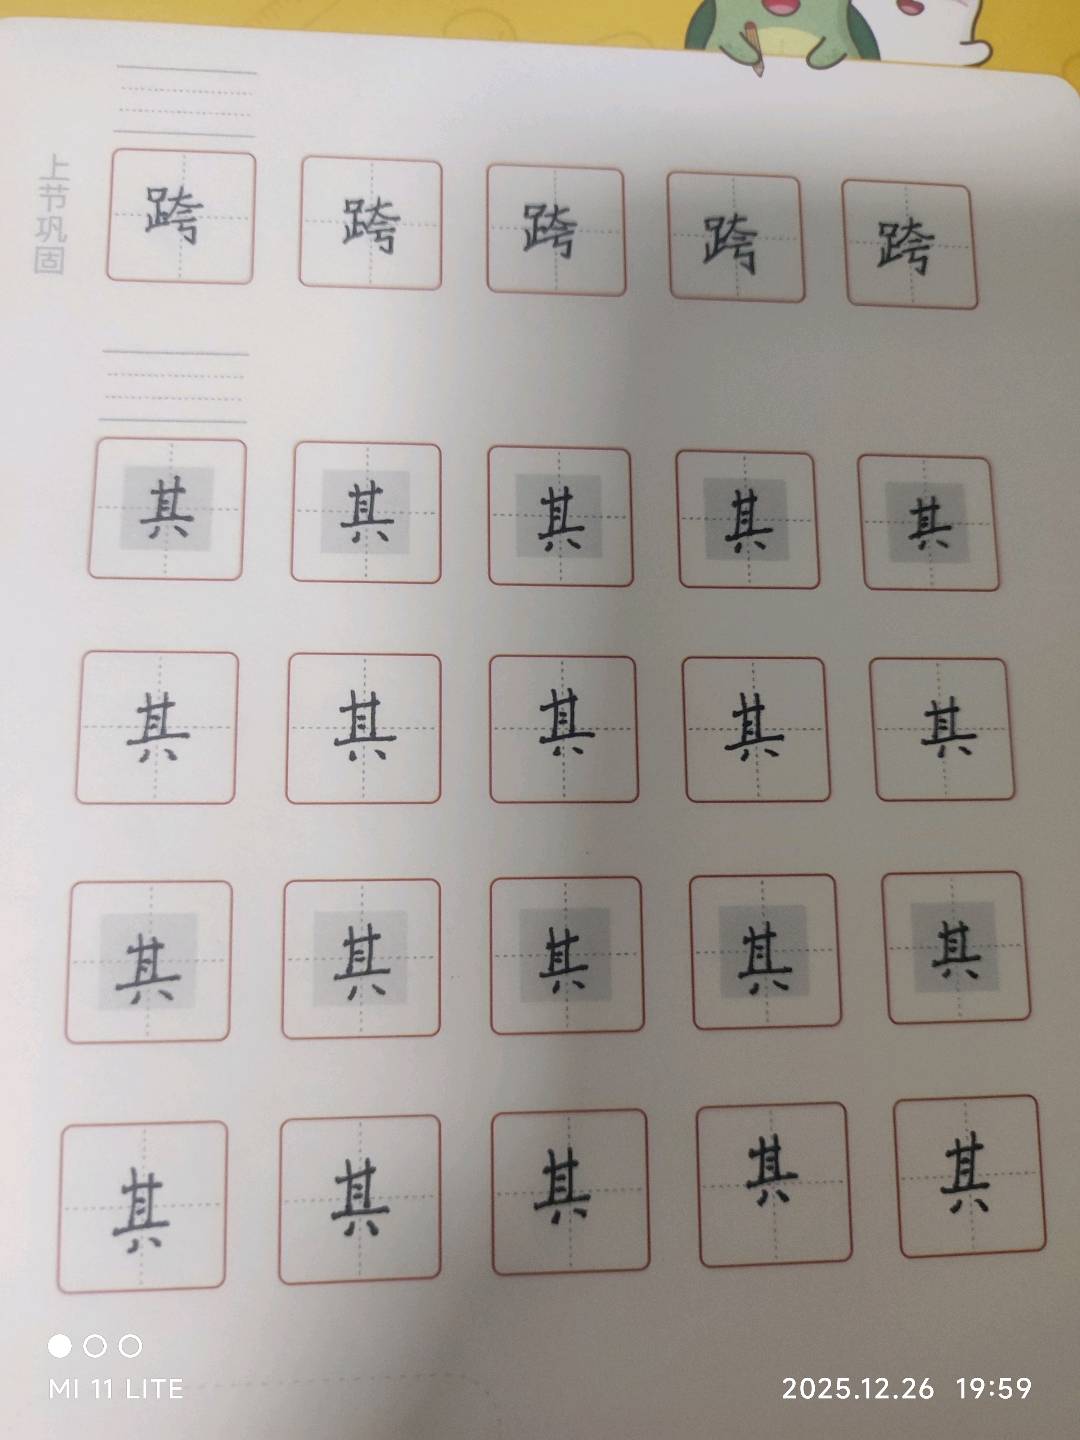 上节巩固
跨 跨 跨 跨 跨
其 其 其 其 其
其 其 其 其 其
其 其 其 其 其
其 其 其 其 其
MI 11 LITE
2025.12.26 19:59